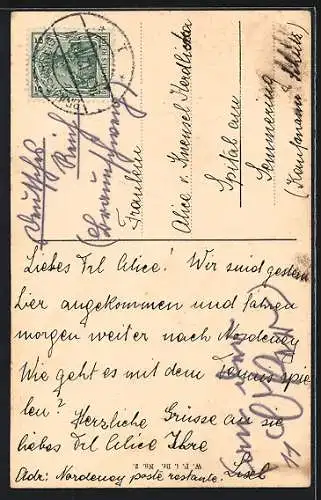 Deutsches
Reich
(Braunschweig)
Fräulein
Alice v. Kneusel Herdlicka
Spital am
Semmering
(Kaufmann Schütz)
Liebes Frl Alice! Wir sind gestern
hier angekommen und fahren
morgen weiter nach Nordeney
Wie geht es mit dem Tennis spie
len? Herzliche Grüsse an sie
liebes Frl Alice Ihre
Lisel
Adr: Nordeney poste restante.